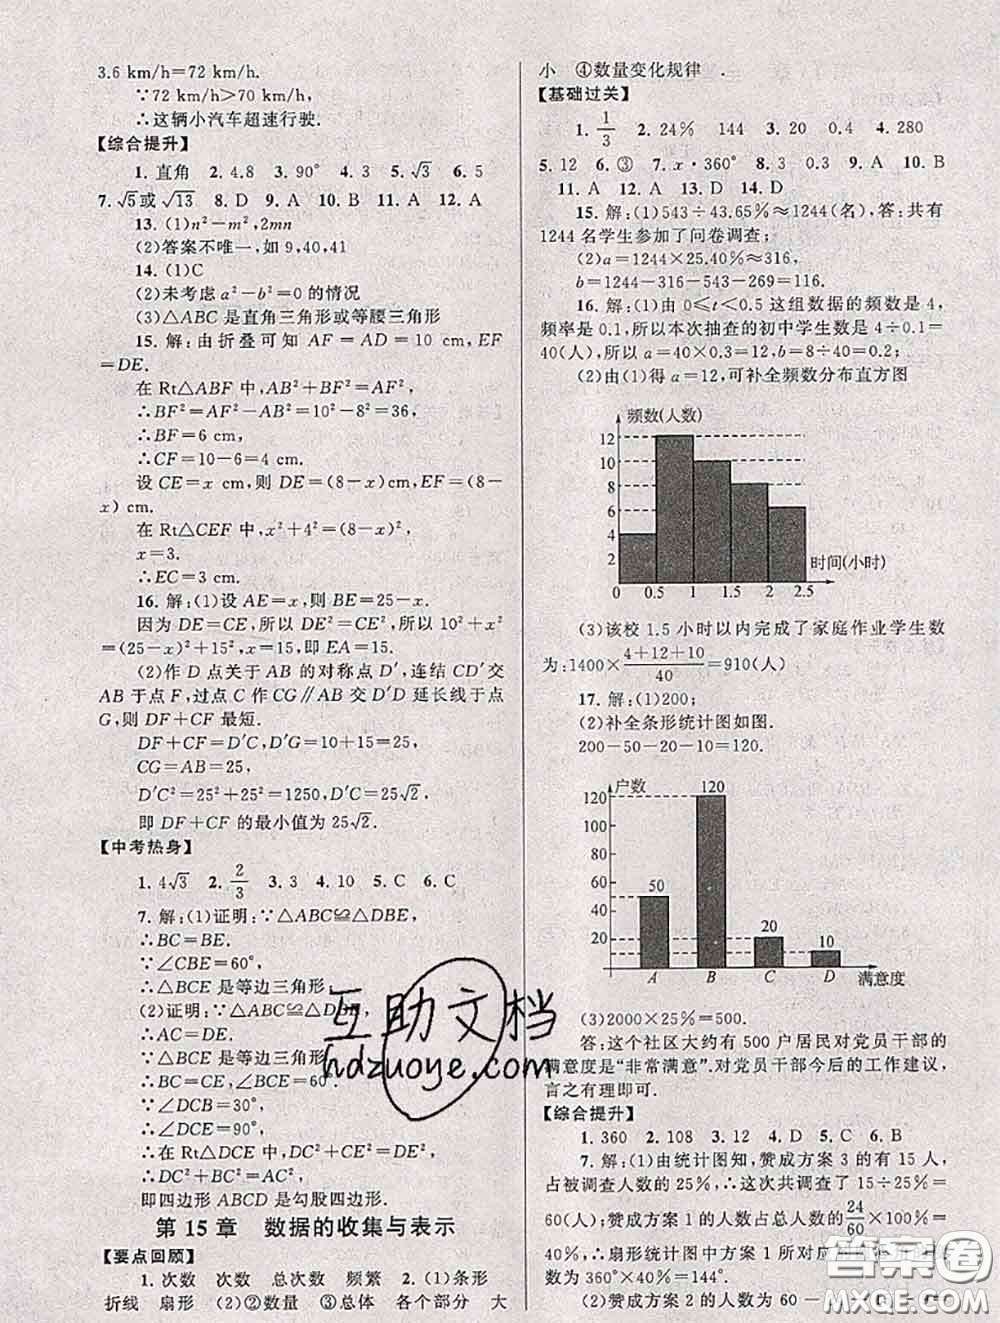 3.6 km/h=72 km/h.
∵72 km/h>70 km/h,
∴这辆小汽车超速行驶.
【综合提升】
1.直角 2.4.8 3.90° 4.3 5.√3 6.5
7.√5或√13 8.D 9.A 10.B 11.A 12.A
13.(1)n²-m²,2mn
(2)答案不唯一,如9,40,41
14.(1)C
(2)未考虑a²-b²=0的情况
(3)△ABC是直角三角形或等腰三角形
15.解:由折叠可知AF=AD=10 cm,EF
=DE.
在Rt△ABF中,AB²+BF²=AF²,
∴BF²=AF²-AB²=10²-8²=36,
∴BF=6 cm.
∴CF=10-6=4 cm.
设CE=x cm,则DE=(8-x)cm,EF=(8-
x)cm.
在Rt△CEF中,x²+4²=(8-x)²,
x=3.
∴EC=3 cm.
16.解:(1)设AE=x,则BE=25-x.
因为DE=CE,所以DE²=CE²,所以10²+x²
=(25-x)²+15²,x=15,即EA=15.
(2)作D点关于AB的对称点D′,连结CD′交
AB于点F,过点C作CG∥AB交D′D延长线于点
G,则DF+CF最短.
DF+CF=D′C,D′G=10+15=25,
CG=AB=25,
D′C²=25²+25²=1250,D′C=25√2,
即DF+CF的最小值为25√2.
【中考热身】
1.4√3 2.2/3 3.3 4.10 5.C 6.C
7.解:(1)证明:∵△ABC≌△DBE,
∴BC=BE.
∵∠CBE=60°,
∴△BCE是等边三角形;
(2)证明:∵△ABC≌△DBE,
∴AC=DE.
∵△BCE是等边三角形,
∴BC=CE,∠BCE=60°.
∵∠DCB=30°,
∴∠DCE=90°,
∴在Rt△DCE中,
∴DC²+CE²=DE²,
∴DC²+BC²=AC²,
即四边形ABCD是勾股四边形.
第15章 数据的收集与表示
【要点回顾】
1.次数 次数 总次数 频繁 2.(1)条形
折线 扇形 (2)②数量 ③总体 各个部分 大
小 ④数量变化规律 .
【基础过关】
1.1/3 2.24% 144 3.20 0.4 4.280
5.12 6.③ 7.x·360° 8.3 0.3 9.A 10.B
11.A 12.A 13.D 14.D
15.解:(1)543÷43.65%≈1244(名),答:共有
1244名学生参加了问卷调查;
(2)a=1244×25.40%≈316,
b=1244-316-543-269=116.
16.解:(1)由0≤t<0.5这组数据的频数是4,
频率是0.1,所以本次抽查的初中学生数是4÷0.1=
40(人),所以a=40×0.3=12,b=8÷40=0.2;
(2)由(1)得a=12,可补全频数分布直方图
频数(人数)
12
10
8
6
4
2
0 0.5 1 1.5 2 2.5
时间(小时)
(3)该校1.5小时以内完成了家庭作业学生数
为:1400×(4+12+10)/40=910(人)
17.解:(1)200;
(2)补全条形统计图如图.
200-50-20-10=120.
户数
120
100
80
60
40
20
50
120
20
10
A B C D 满意度
(3)2000×25%=500.
答:这个社区大约有500户居民对党员干部的
满意度是“非常满意”.对党员干部今后的工作建议,
言之有理即可.
【综合提升】
1.360 2.108 3.12 4.D 5.C 6.B
7.解:(1)由统计图知,赞成方案3的有15人,
占被调查人数的25%,∴这次共调查了15÷25%=
60(人);赞成方案1的人数占总人数的24/60×100%=
40%,∴扇形统计图中方案1所对应
数为360°×40%=144°.
(2)赞成方案2的人数为60-
互助文档
hdzuoye.com
答案圈
MXQE.COM